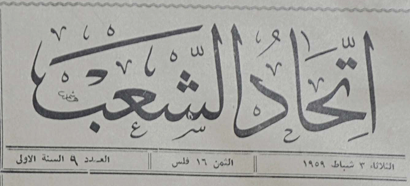 اتحاد الشعب
الثلاثاء ٣ شباط ١٩٥٩ الثمن ١٦ فلس العدد ٩ السنة الاولى